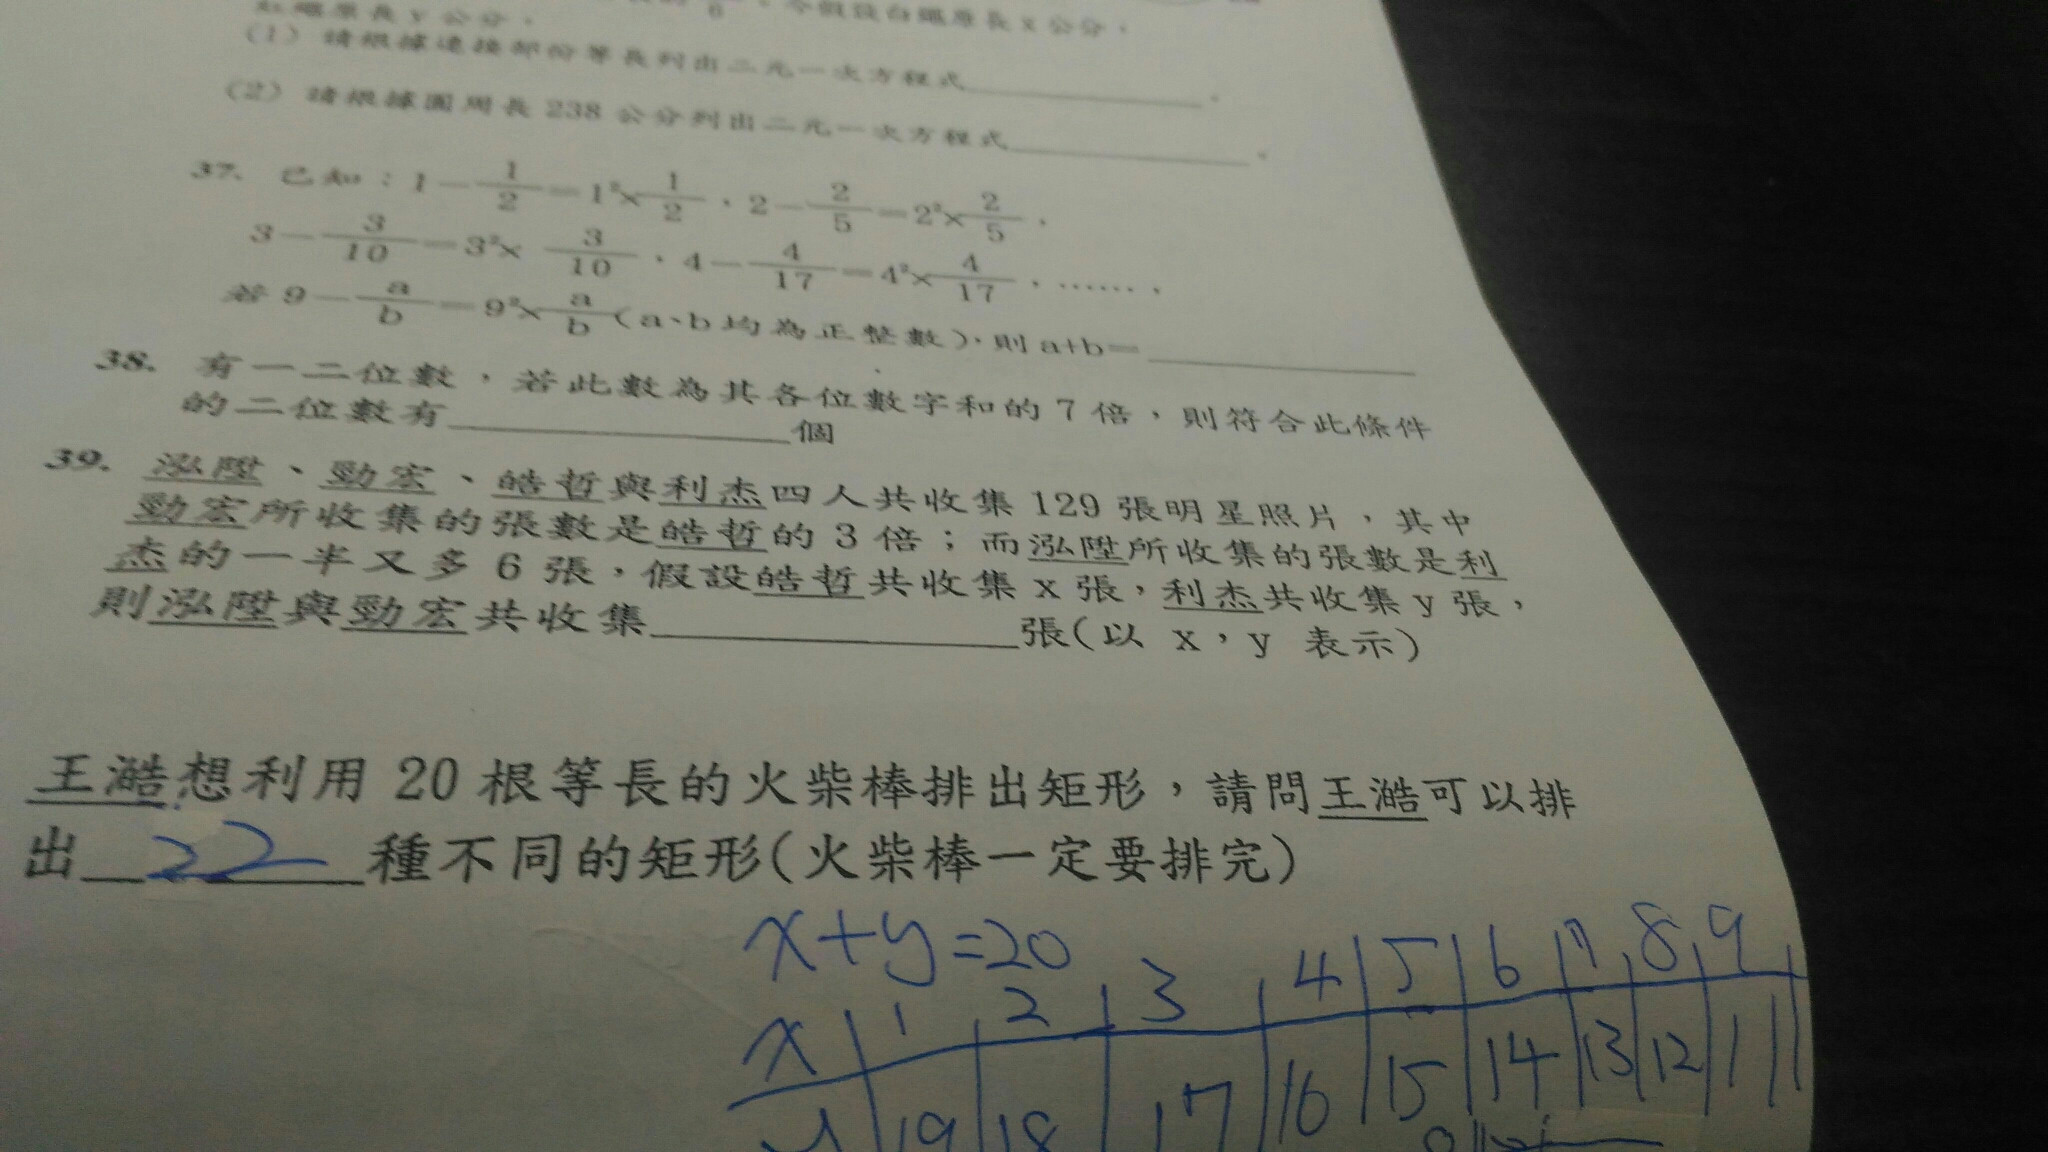 今假設白繩原長x公分,
紅繩原長y公分,
(1) 請根據連接部份等長列出二元一次方程式 。
(2) 請根據圓周長 238 公分列出二元一次方程式 。
37. 已知：1-1/2=1²×1/2，2-2/5=2²×2/5，
3-3/10=3²×3/10，4-4/17=4²×4/17，……，
若 9-a/b=9²×a/b(a、b均為正整數),則 a+b=
38. 有一二位數，若此數為其各位數字和的 7 倍，則符合此條件
的二位數有 個
39. 泓陞、勁宏、皓哲與利杰四人共收集 129 張明星照片，其中
勁宏所收集的張數是皓哲的 3 倍；而泓陞所收集的張數是利
杰的一半又多 6 張，假設皓哲共收集 x 張，利杰共收集 y 張，
則泓陞與勁宏共收集 張(以 x，y 表示)
王澔想利用 20 根等長的火柴棒排出矩形，請問王澔可以排
出 22 種不同的矩形(火柴棒一定要排完)
x+y=20
x 1 2 3 4 5 6 7 8 9
y 19 18 17 16 15 14 13 12 11